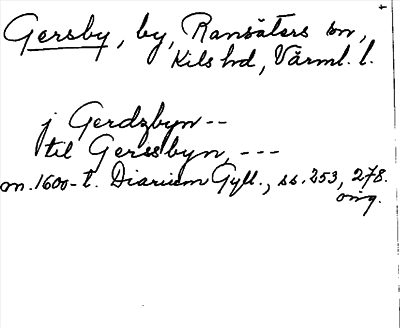 Gersby, by, Ransäters sn,
Kils hd, Värml. l.
j Gerdzbyn --
til Gerssbyn, ---
om. 1600-t. Diarium Gyll., ss. 253, 278.
orig.